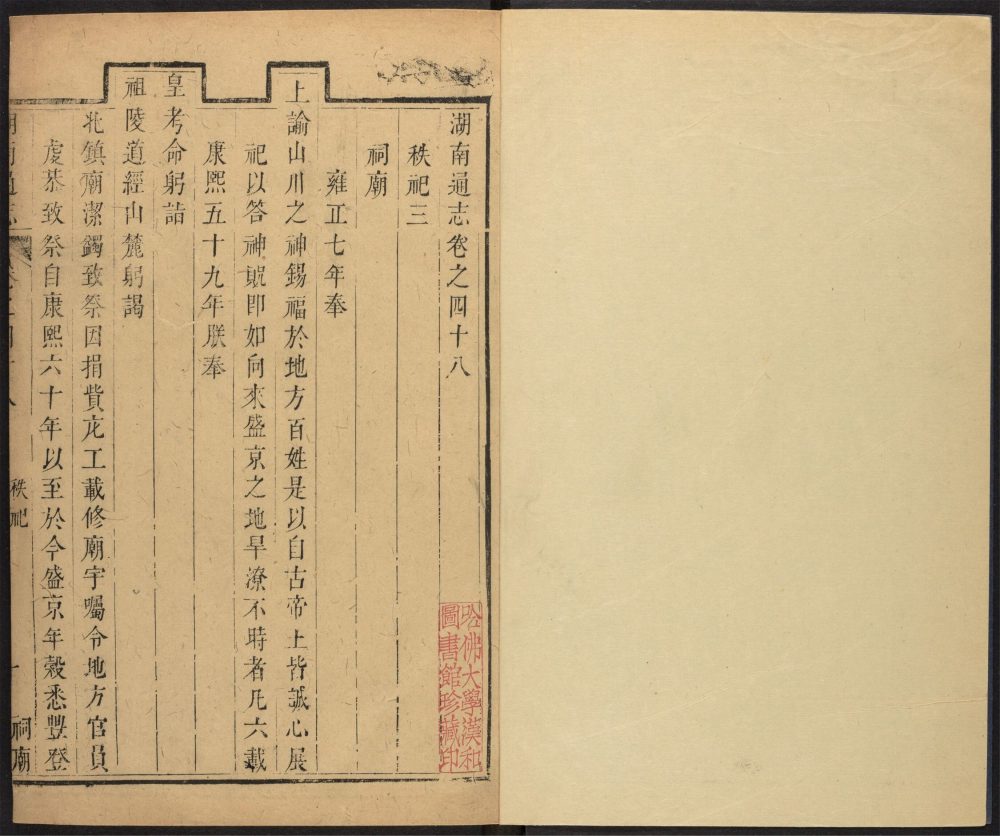 湖南通志卷之四十八
秩祀三
祠廟
雍正七年奉
上諭山川之神錫福於地方百姓是以自古帝王皆誠心展
祀以答神貺即如向來盛京之地旱潦不時者凡六載
康熙五十九年朕奉
皇考命躬詣
祖陵道經山麓躬謁
北鎮廟潔蠲致祭因捐貲庀工載修廟宇囑令地方官員
虔恭致祭自康熙六十年以至於今盛京年穀悉豐登
秩祀
一
祠廟
哈佛大學漢和
圖書館珍藏印